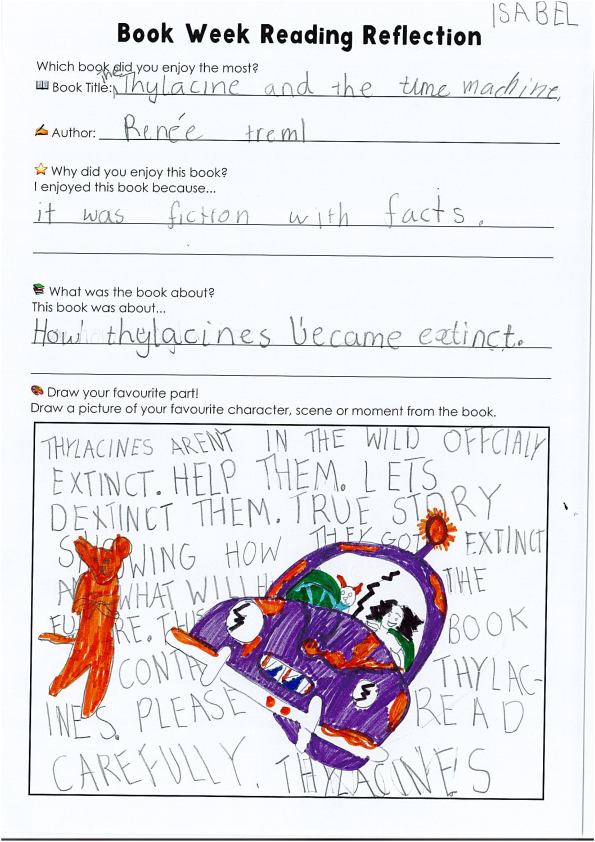 ISABEL
Book Week Reading Reflection
Which book did you enjoy the most?
Book Title: the Thylacine and the time machine.
Author: Renée treml
Why did you enjoy this book?
I enjoyed this book because...
it was fiction with facts.
What was the book about?
This book was about...
How thylacines became extinct.
Draw your favourite part!
Draw a picture of your favourite character, scene or moment from the book.
THYLACINES ARENT IN THE WILD OFFCIALY
EXTINCT. HELP THEM. LETS
DEXTINCT THEM. TRUE STORY
HOW THEY GOT EXTINCT
WHAT WILL THE
THIS BOOK
CONTA THYLAC-
INES. PLEASE READ
CAREFULLY. THYLACINES